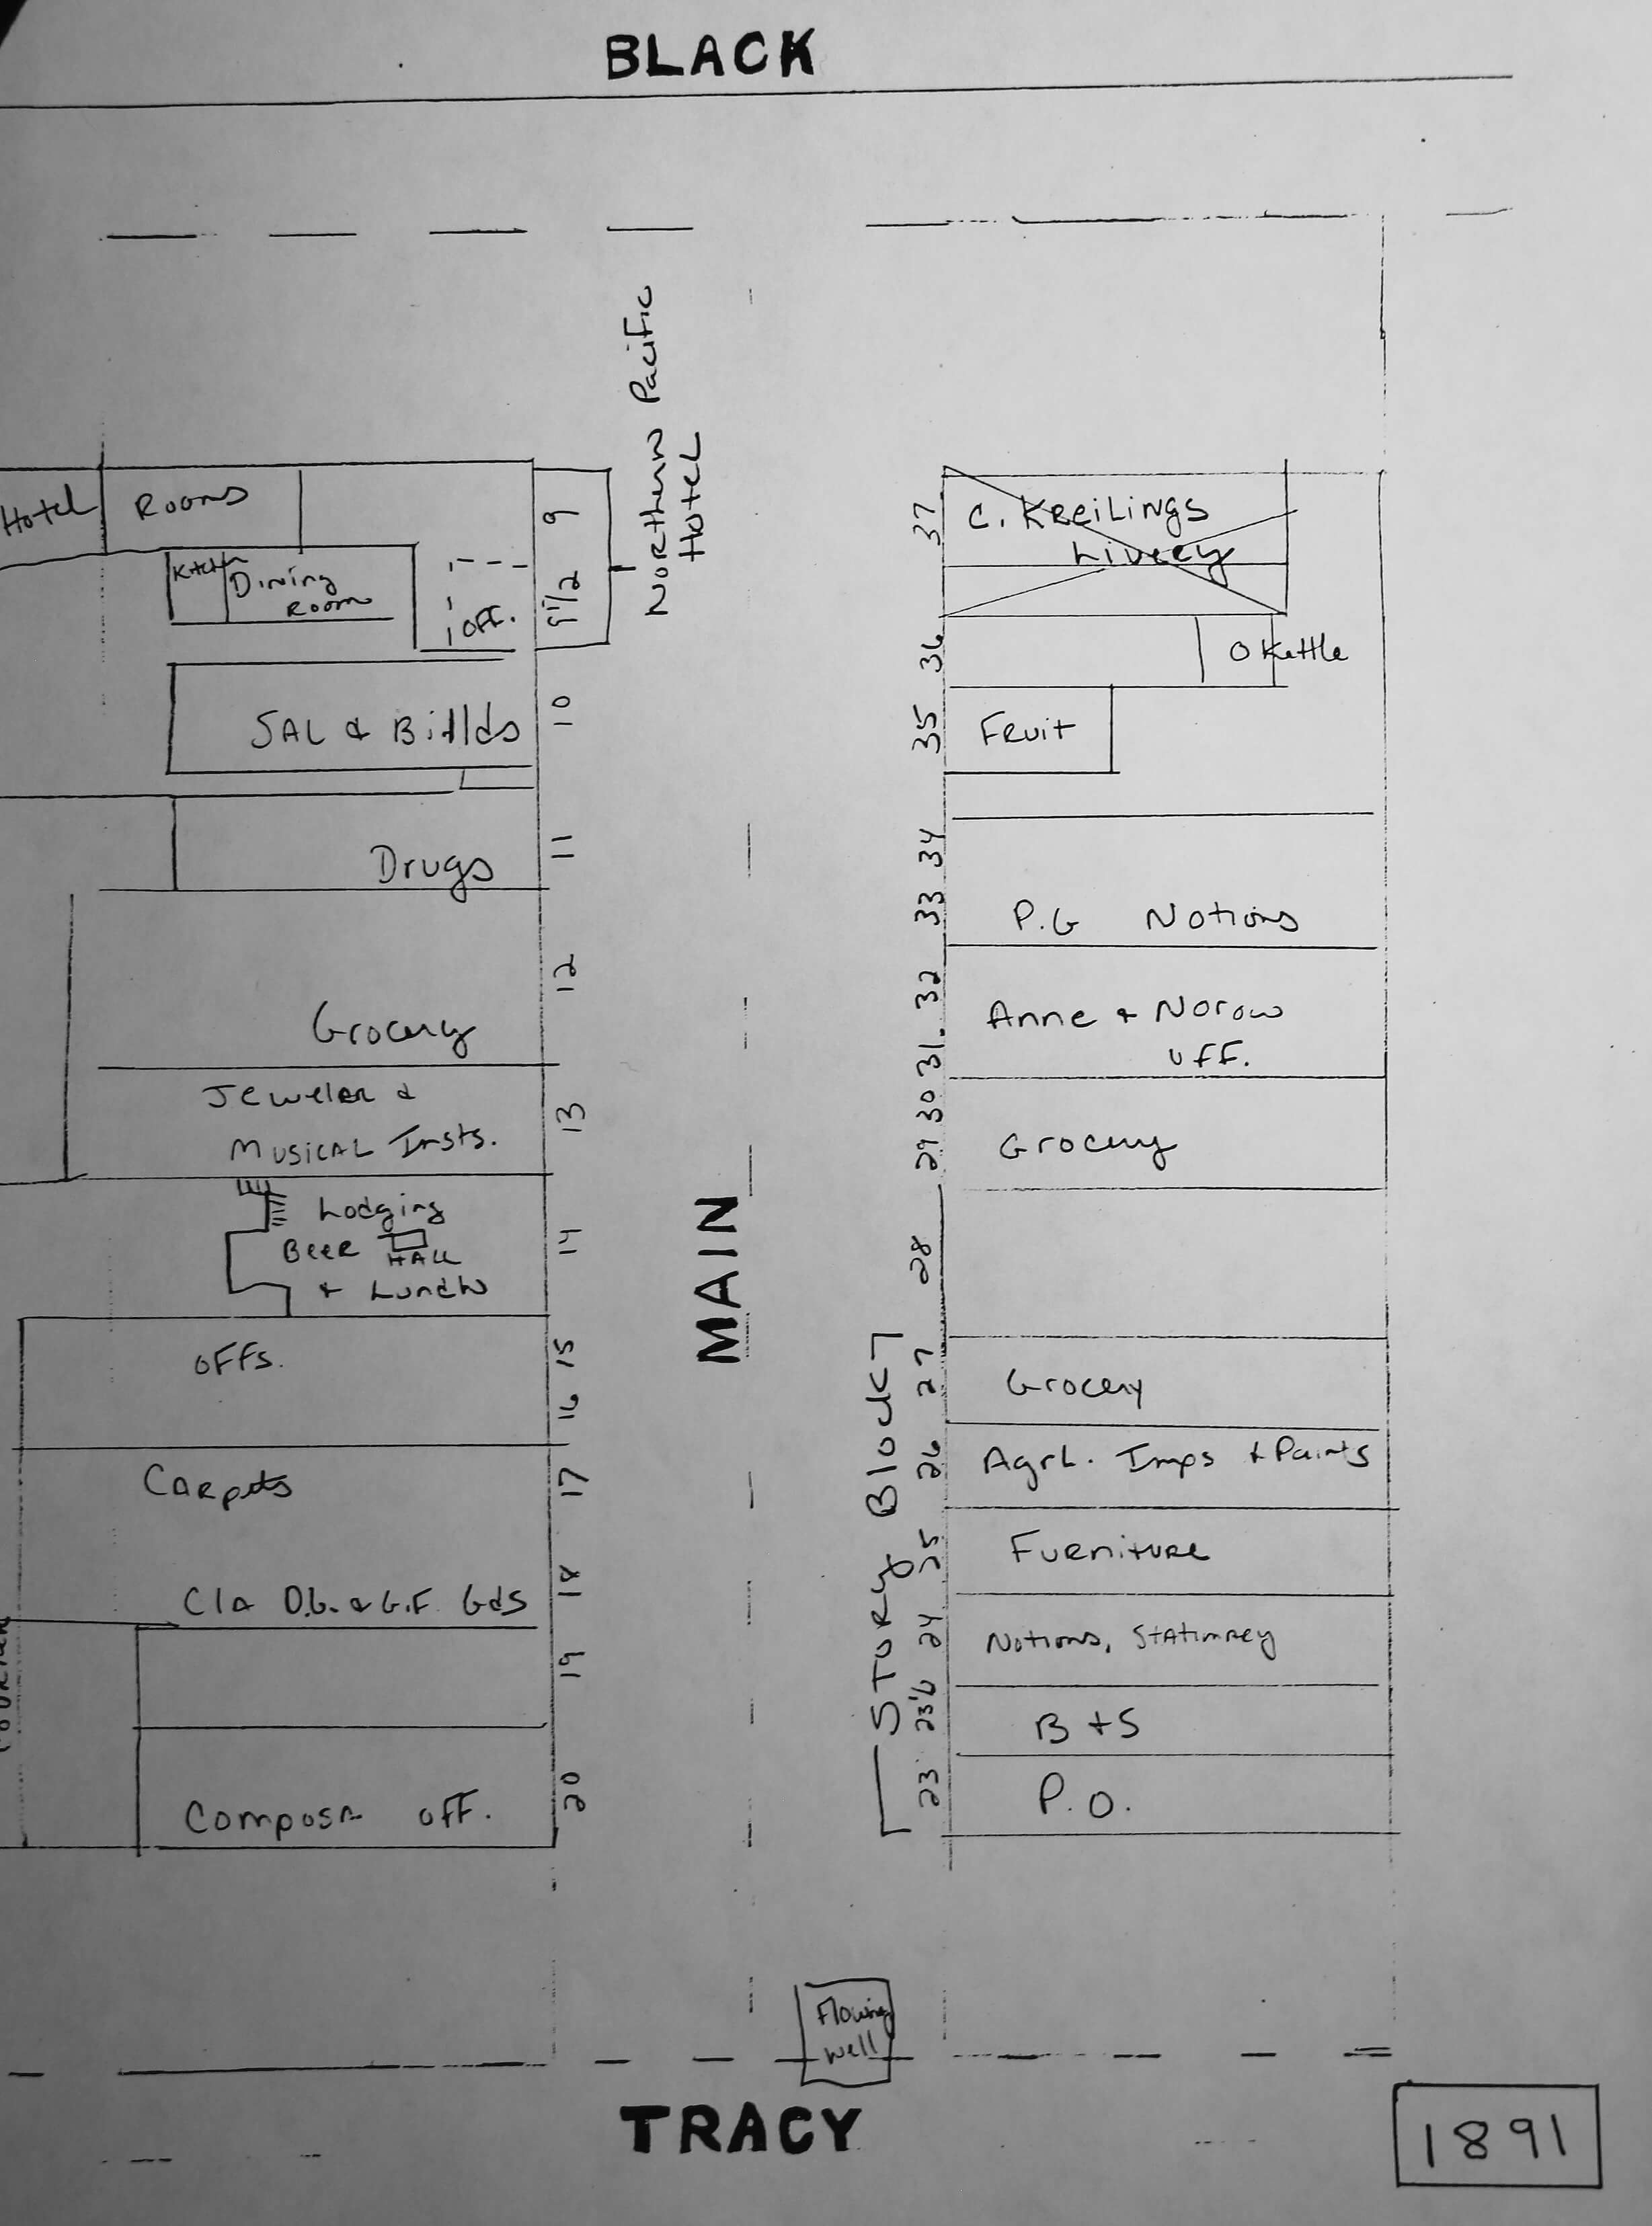 BLACK
Northern Pacific
Hotel
Hotel
Rooms
Kitchen
Dining
Room
Off.
9
9 1/2
SAL & Billds
10
Drugs
11
12
Grocery
Jeweler &
Musical Insts.
13
Lodging
Beer Hall
& Lunch
14
OFFS.
15
16
Carpets
17
Clo D.G. & G.F. Gds
18
19
Compos'n off.
20
MAIN
37
C. Kreilings
Livery
36
O Kettle
35
Fruit
34
33
P.G Notions
32
31.
Anne & Norow
off.
30
29
Grocery
28
Story Block
27
Grocery
26
Agrl. Imps & Paints
25
Furniture
24
Notions, Stationrey
23 1/2
B + S
23
P.O.
Flowing
well
TRACY
1891